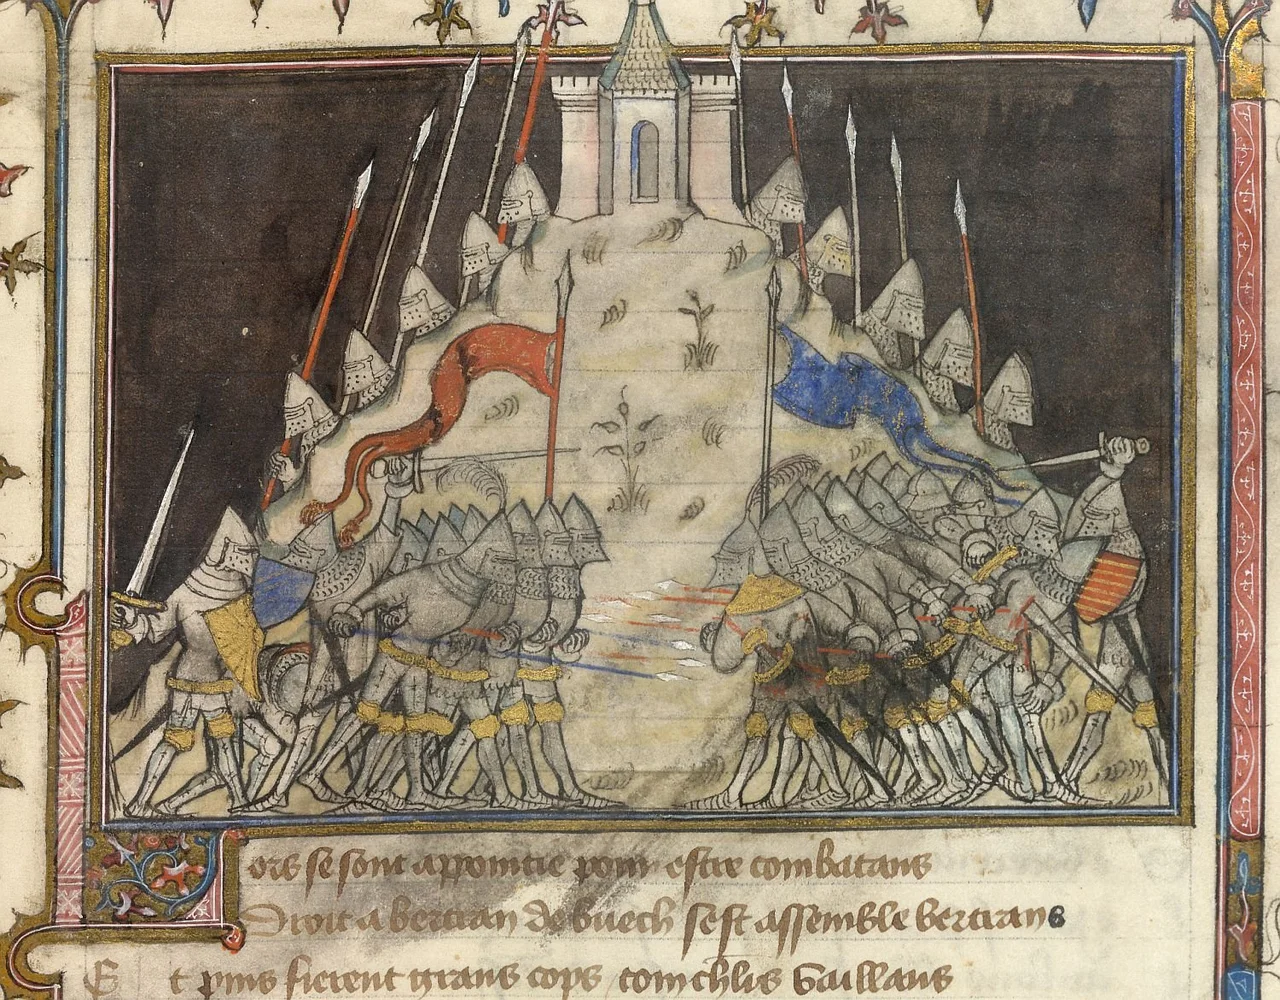 Lors se sont appointie pour estre combatans
Droit a bertran de buech sest assemble bertrans
Et puis fierent grans cops com chlrs vaillans